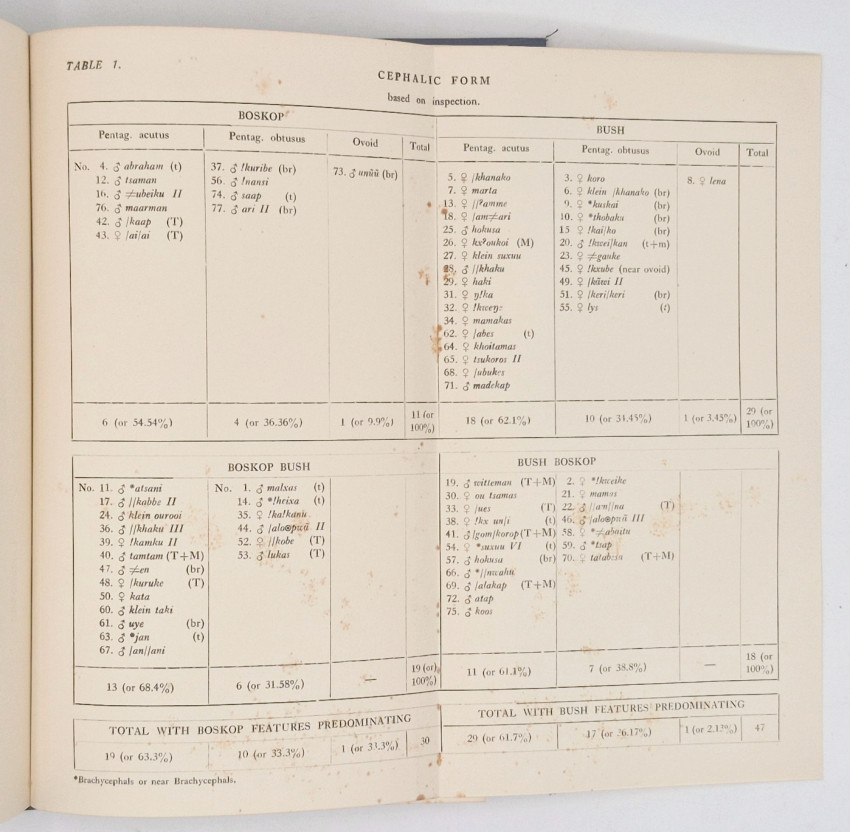 TABLE 1.
CEPHALIC FORM
based on inspection.
BOSKOP
Pentag. acutus Pentag. obtusus Ovoid Total
No. 4. ♂ abraham (t) 37. ♂ !kuribe (br) 73. ♂ unûû (br)
12. ♂ tsaman 56. ♂ !nansi
16. ♂ ≠ubeiku II 74. ♂ saap (t)
76. ♂ maarman 77. ♂ ari II (br)
42. ♂ /kaap (T)
43. ♀ /ai/ai (T)
6 (or 54.54%) 4 (or 36.36%) 1 (or 9.9%) 11 (or 100%)
BUSH
Pentag. acutus Pentag. obtusus Ovoid Total
5. ♀ /khanako 3. ♀ koro 8. ♀ lena
7. ♀ marta 6. ♀ klein /khanako (br)
13. ♀ //ʔamme 9. ♀ *kuskai (br)
18. ♀ /am≠ari 10. ♀ *thobaku (br)
25. ♂ hokusa 15 ♀ !kai/ko (br)
26. ♀ kxʔoukoi (M) 20. ♂ !kwei/kan (t+m)
27. ♀ klein suxuu 23. ♀ ≠gauke
28. ♂ //khaku 45. ♀ !kxube (near ovoid)
29. ♀ haki 49. ♀ /kãwi II
31. ♀ ŋ!ka 51. ♀ /keri/keri (br)
32. ♀ 55. ♀ lys (t)
34. ♀ mamakas
62. ♀ /abes (t)
64. ♀ khoitamas
65. ♀ tsukoros II
68. ♀ /ubukes
71. ♂ madekap
18 (or 62.1%) 10 (or 34.45%) 1 (or 3.45%) 29 (or 100%)
BOSKOP BUSH
No. 11. ♂ *atsani No. 1. ♂ malxas (t)
17. ♂ //kabbe II 14. ♂ *!heixa (t)
24. ♂ klein ourooi 35. ♀ !ka!kanu
36. ♂ //khaku III 44. ♂ II
39. ♀ !kamku II 52. ♀ //kobe (T)
40. ♂ tamtam (T+M) 53. ♂ lukas (T)
47. ♂ ≠en (br)
48. ♀ /kuruke (T)
50. ♀ kata
60. ♂ klein taki
61. ♂ uye (br)
63. ♂ *jan (t)
67. ♂ /an//ani
13 (or 68.4%) 6 (or 31.58%) — 19 (or) 100%)
BUSH BOSKOP
19. ♂ witteman (T+M) 2. ♀ *!kweike
30. ♀ ou tsamas 21. ♀ mamas
33. ♀ /ues (T) 22. ♂ (T)
38. ♀ !kx un/i (t) 46. ♂ III
41. ♂ /gam/korop (T+M) 58. ♀ *≠abaitu
54. ♀ *suxuu VI (t) 59. ♂ *tsap
57. ♂ hokusa (br) 70. ♀ (T+M)
66. ♂
69. ♂ /alakap (T+M)
72. ♂ atap
75. ♂ koos
11 (or 61.1%) 7 (or 38.8%) — 18 (or 100%)
TOTAL WITH BOSKOP FEATURES PREDOMINATING
19 (or 63.3%) 10 (or 33.3%) 1 (or 33.3%) 30
TOTAL WITH BUSH FEATURES PREDOMINATING
29 (or 61.7%) 17 (or 36.17%) 1 (or 2.13%) 47
*Brachycephals or near Brachycephals.